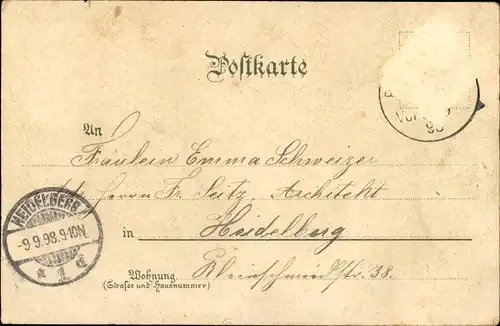 Postkarte
Vor
98
An
Fräulein Emma Schweizer
Herrn Fr. Seitz, Architekt
in Heidelberg
HEIDELBERG
-9.9.98.9-10N.
* 1 d
Wohnung
(Strasse und Hausnummer)
Kleinschmidtstr. 38.